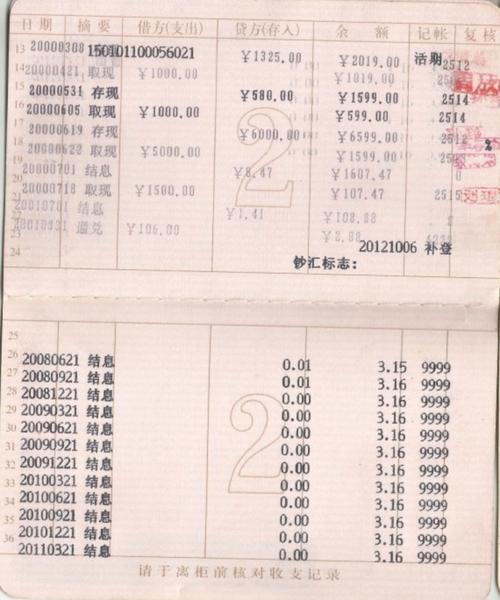 日期 摘要 借方(支出) 贷方(存入) 余额 记帐 复核
13 20000308 150101100056021 ￥1325.00 ￥2019.00 活期 2512
14 20000421 取现 ￥1000.00 ￥1019.00
20000531 存现 ￥580.00 ￥1599.00 2514
16 20000605 取现 ￥1000.00 ￥599.00 2514
20000619 存现 ￥6000.00 ￥6599.00 2512
20000622 取现 ￥5000.00 ￥1599.00
20000701 结息 ￥8.47 ￥1607.47 0
20000718 取现 ￥1500.00 ￥107.47 2515
结息 ￥1.41 ￥108.88
通兑 ￥106.00
20121006 补登
24 钞汇标志：
2
25
26 20080621 结息 0.01 3.15 9999
27 20080921 结息 0.01 3.16 9999
28 20081221 结息 0.00 3.16 9999
29 20090321 结息 0.00 3.16 9999
30 20090621 结息 0.00 3.16 9999
31 20090921 结息 0.00 3.16 9999
32 20091221 结息 0.00 3.16 9999
33 20100321 结息 0.00 3.16 9999
34 20100621 结息 0.00 3.16 9999
35 20100921 结息 0.00 3.16 9999
36 20101221 结息 0.00 3.16 9999
20110321 结息 0.00 3.16 9999
2
请于离柜前核对收支记录